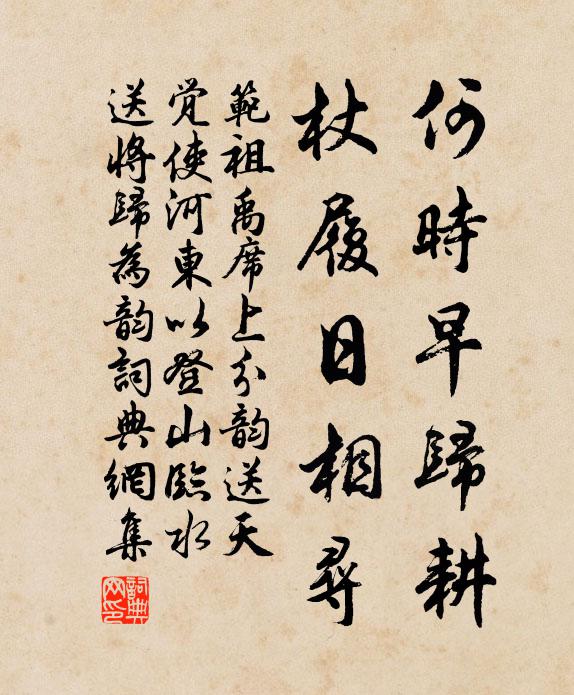 何時早歸耕
杖履日相尋
範祖禹席上分韵送天
覺使河東以登山臨水
送將歸為韵詞典網集
詞典网印